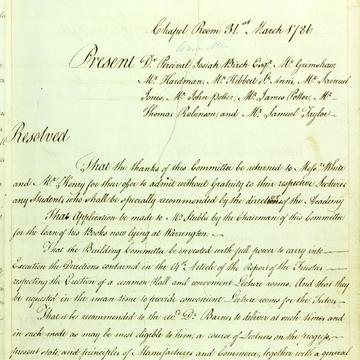 Chapel Room 31.st March 1786
Present Dr Percival Josiah Birch Esqr. Mr Grimshaw,
Mr Hardman, Mr Hibbert St. Anne, Mr Samuel
Jones, Mr John Potter, Mr James Potter, Mr
Thomas Robinson, and Mr Samuel Taylor
Resolved
That the thanks of this Committee be returned to Messrs White
and Mr Henry for their offer to admit without Gratuity to their respective Lectures
any Students who shall be specially recommended by the direction of the Academy
That Application be made to Mr Stubbs by the Chairman of this Committee
for the loan of his Books now lying at Warrington
That the Building Committee be invested with full power to carry into
Execution the Directions contained in the 4th. Article of the Report of the Trustees
respecting the Erection of a common Hall and convenient Lecture rooms. And that they
be requested in the mean time to provide convenient Lecture rooms for the Tutors
That it be recommended to the revd. Dr. Barnes to deliver at such times and
in such mode as may be most eligible to him, a course of Lectures on the progress
present state, and principles of Manufactures and Commerce, together with a general